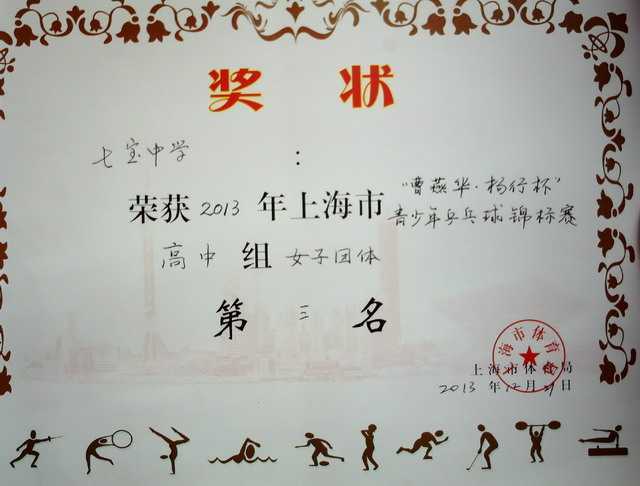 奖状
七宝中学：
荣获2013年上海市“曹燕华·杨行杯”
青少年乒乓球锦标赛
高中组 女子团体
第三名
上海市体育局
2013年12月31日